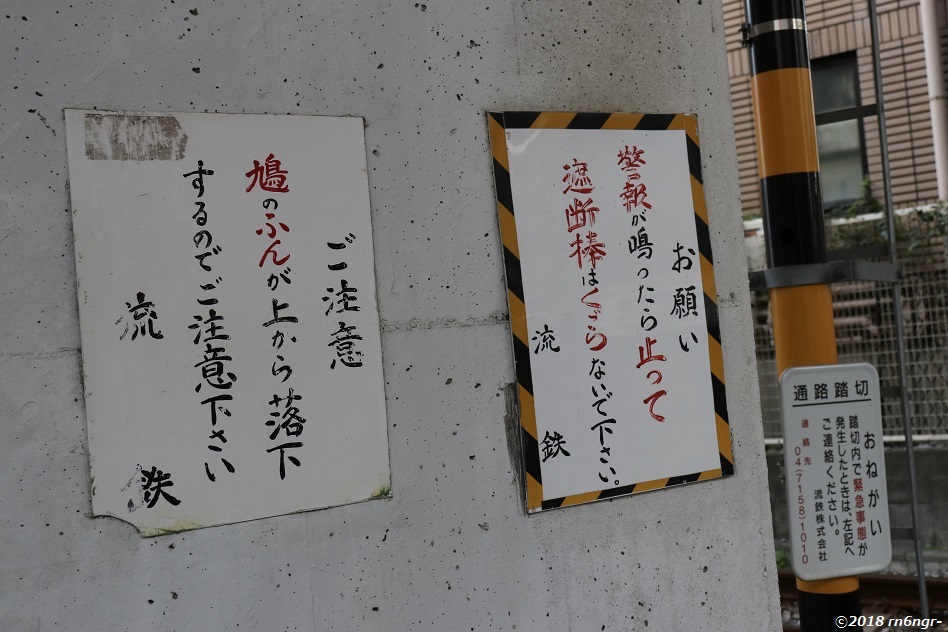 ご注意
鳩のふんが上から落下
するのでご注意下さい
流鉄
お願い
警報が鳴ったら止って
遮断棒はくぐらないで下さい。
流鉄
通路踏切
おねがい
踏切内で緊急事態が
発生したときは、左記へ
ご連絡ください。
流鉄株式会社
連絡先
04(7158)1010
©2018 rn6ngr-